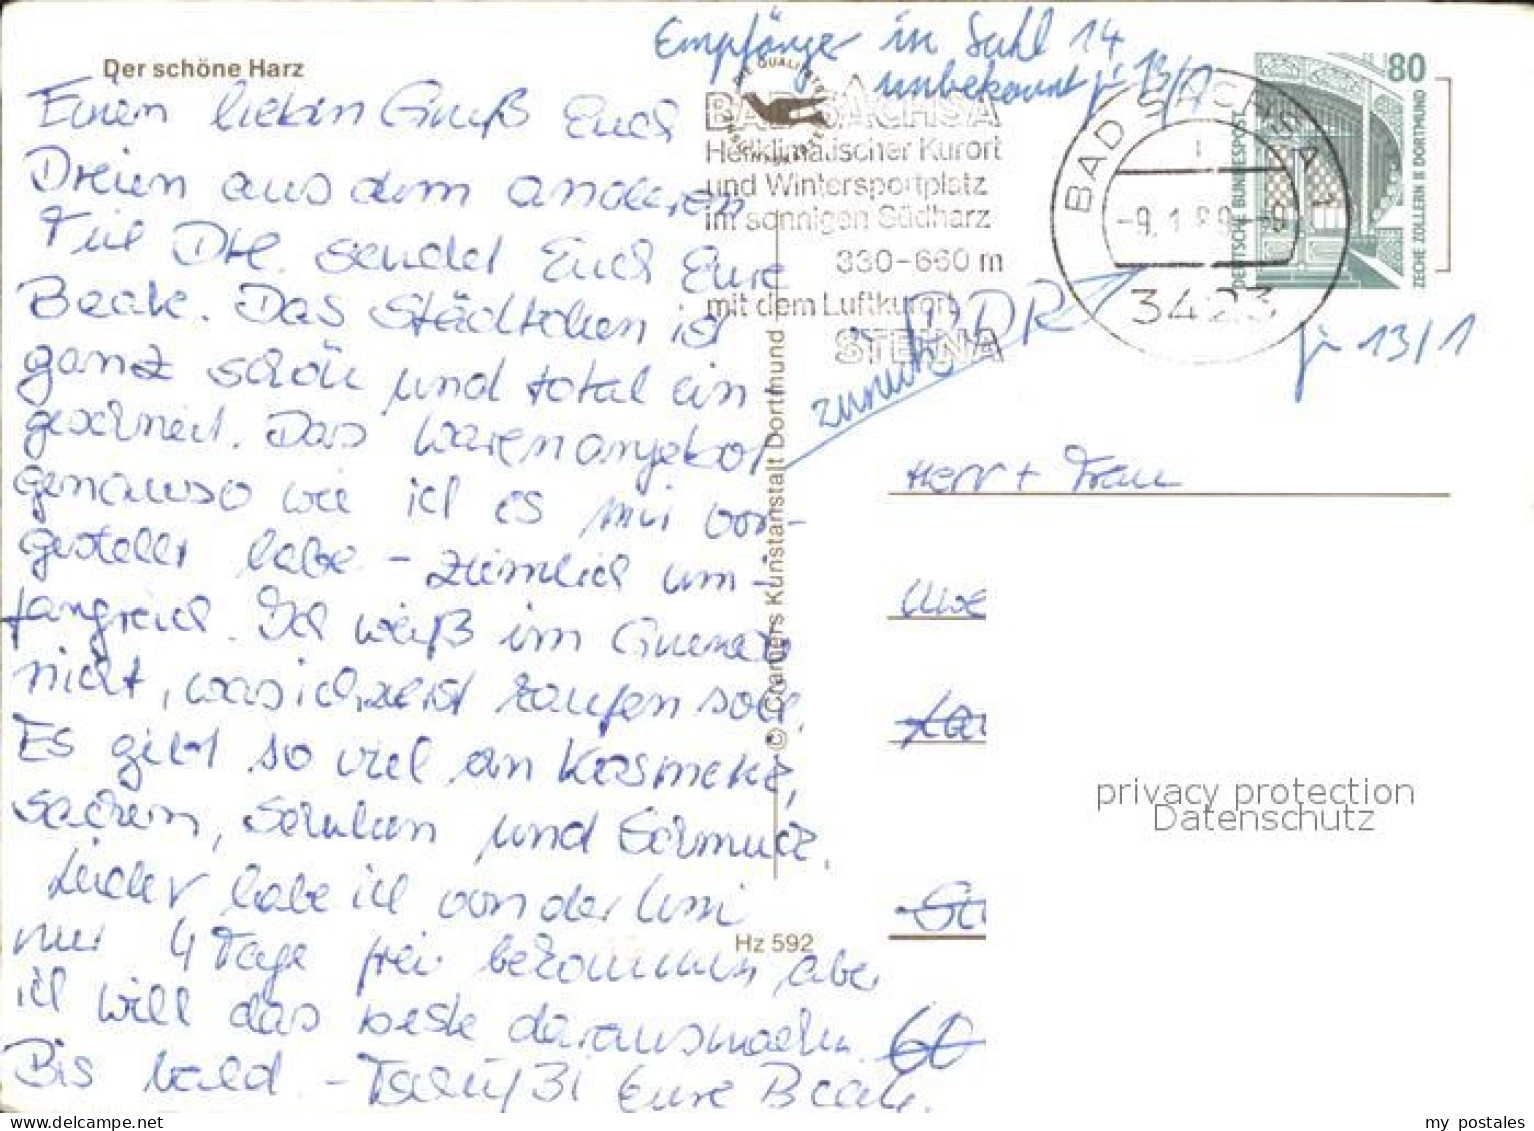 Der schöne Harz
Einen lieben Gruß Euch
Dreien aus dem anderen
Teil Dtl. sendet Euch Eure
Beate. Das Städtchen ist
ganz schön und total ein-
geschneit. Das Warenangebot
genauso wie ich es mir vor-
gestellt habe - ziemlich um-
fangreich. Ich weiß im Grunde
nicht, was ich zuerst kaufen soll.
Es gibt so viel an Kosmetik,
sachen, Schuhen und Schmuck.
Leider habe ich von der Uni
nur 4 Tage frei bekommen, aber
ich will das beste daraus machen.
Bis bald - Tschüß! Eure Beate.
Empfänger in Suhl 14
unbekannt 13/1
DIE QUALITÄTS
BAD SACHSA
Heilklimatischer Kurort
und Wintersportplatz
im sonnigen Südharz
330-660 m
mit dem Luftkurort
STEINA
BAD SACHSA 1
-9.1.89-9
3423
80
DEUTSCHE BUNDESPOST
ZECHE ZOLLERN II DORTMUND
zurück
DDR
13/1
© Cramers Kunstanstalt Dortmund
Hz 592
Herr + Frau
Uwe
60
privacy protection
Datenschutz
my postales